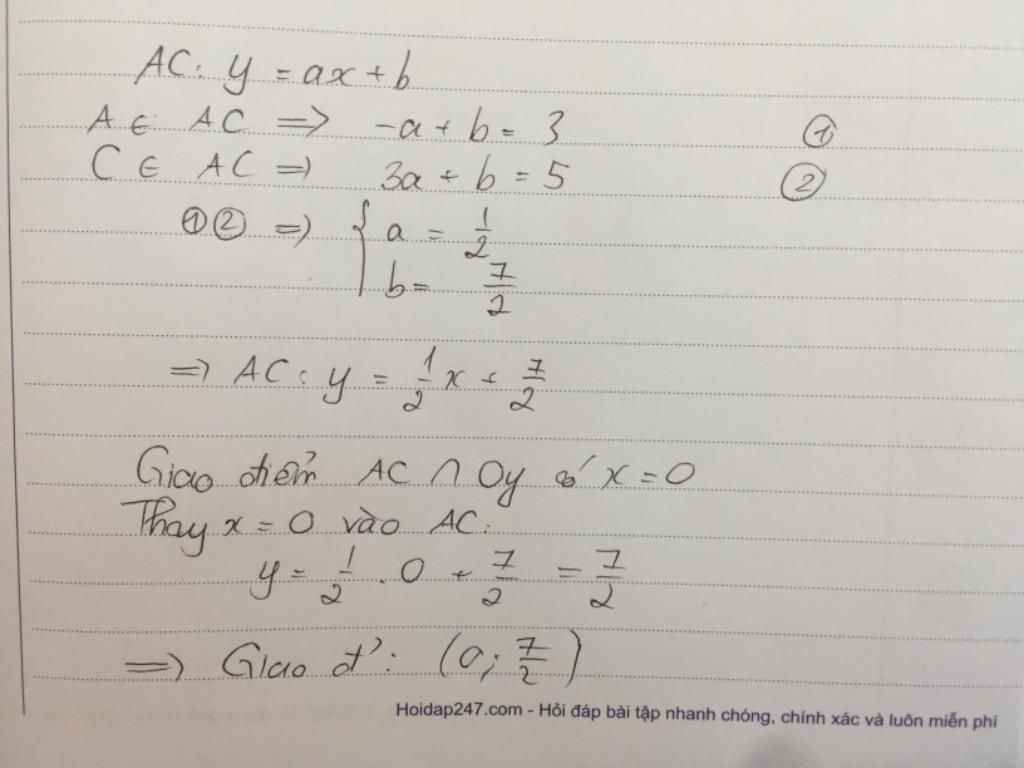 AC: y = ax + b
A ∈ AC => -a + b = 3 ①
C ∈ AC => 3a + b = 5 ②
①② => { a = 1/2
b = 7/2
=> AC: y = 1/2 x + 7/2
Giao điểm AC ∩ Oy có x = 0
Thay x = 0 vào AC:
y = 1/2 . 0 + 7/2 = 7/2
=> Giao đ': (0; 7/2)
Hoidap247.com - Hỏi đáp bài tập nhanh chóng, chính xác và luôn miễn phí